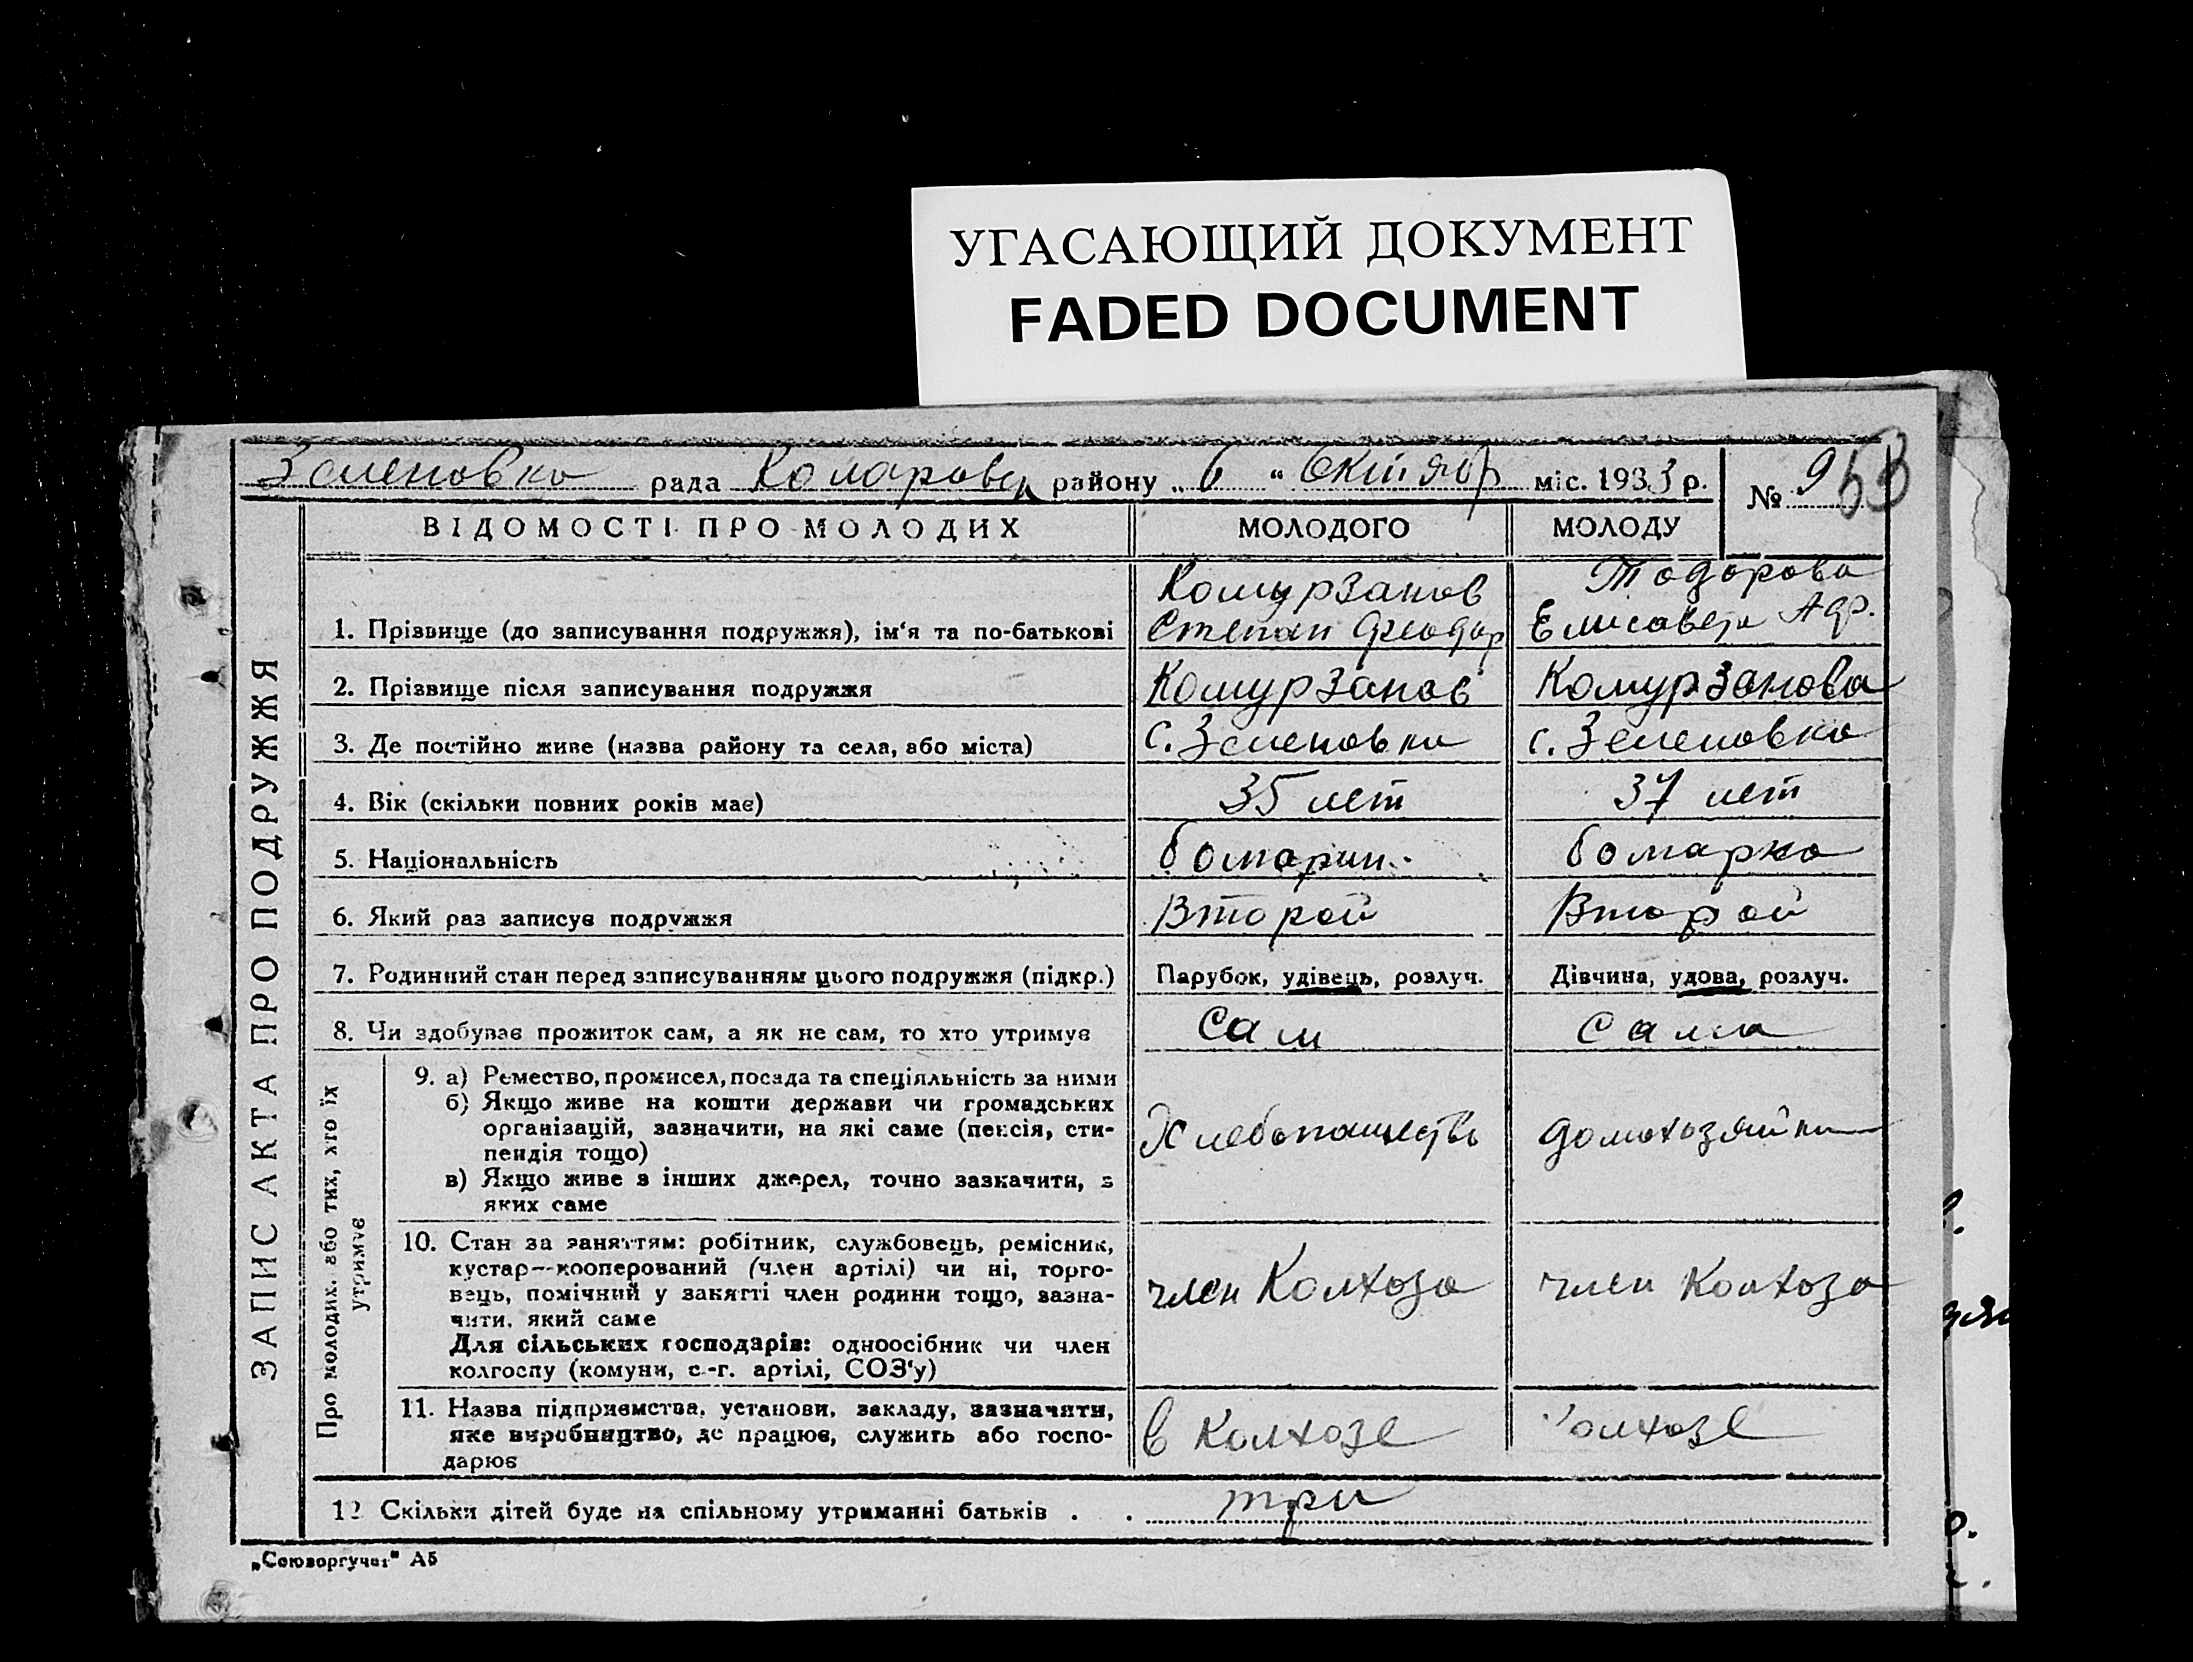 УГАСАЮЩИЙ ДОКУМЕНТ
FADED DOCUMENT
Зеленовка рада Коларовск району „ 6 “ Октябр міс. 1933 р. № 9
53
ЗАПИС АКТА ПРО ПОДРУЖЖЯ
ВІДОМОСТІ ПРО МОЛОДИХ МОЛОДОГО МОЛОДУ
Комурзанов Тодорова
1. Прізвище (до записування подружжя), ім‘я та по-батькові Степан Феодор Елисавета Адр.
2. Прізвище після записування подружжя Комурзанов Комурзанова
3. Де постійно живе (назва району та села, або міста) с. Зеленовка с. Зеленовка
4. Вік (скільки повних років має) 35 лет 37 лет
5. Національність болгарин болгарка
6. Який раз записує подружжя Второй Второй
7. Родинний стан перед записуванням цього подружжя (підкр.) Парубок, удівець, розлуч. Дівчина, удова, розлуч.
8. Чи здобуває прожиток сам, а як не сам, то хто утримує Сам Сама
Про молодих, або тих, хто їх утримує
9. а) Ремество, промисел, посада та спеціяльність за ними
б) Якщо живе на кошти держави чи громадських
організацій, зазначити, на які саме (пенсія, сти-
пендія тощо) Хлебопашество домохозяйка
в) Якщо живе з інших джерел, точно зазначити, з
яких саме
10. Стан за заняттям: робітник, службовець, ремісник,
кустар—кооперований (член артілі) чи ні, торго-
вець, помічний у занятті член родини тощо, зазна- член Колхоза член Колхоза
чити, який саме
Для сільських господарів: одноосібник чи член
колгоспу (комуни, с.-г. артілі, СОЗ‘у)
11. Назва підприємства, установи, закладу, зазначити,
яке виробництво, де працює, служить або госпо- в Колхозе Колхозе
дарює
12 Скільки дітей буде на спільному утриманні батьків . . три
„Союзоргучет“ А5